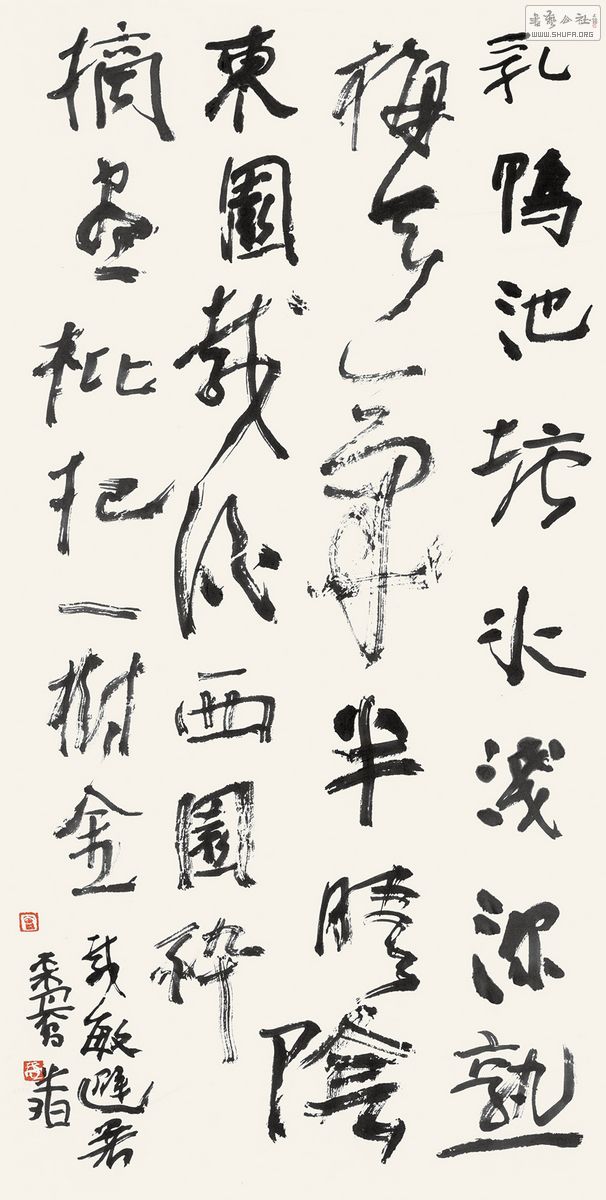 乳鴨池塘水淺深熟
梅天氣半晴陰
東園載酒西園醉
摘盡枇杷一樹金
戴敏避暑
書藝公社
WWW.SHUFA.ORG